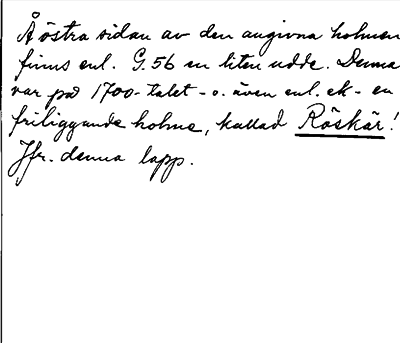 Å östra sidan av den angivna holmen
finns enl. G.56 en liten udde. Denna
var på 1700-talet - o. även enl. ek - en
friliggande holme, kallad Röskär!
Jfr. denna lapp.